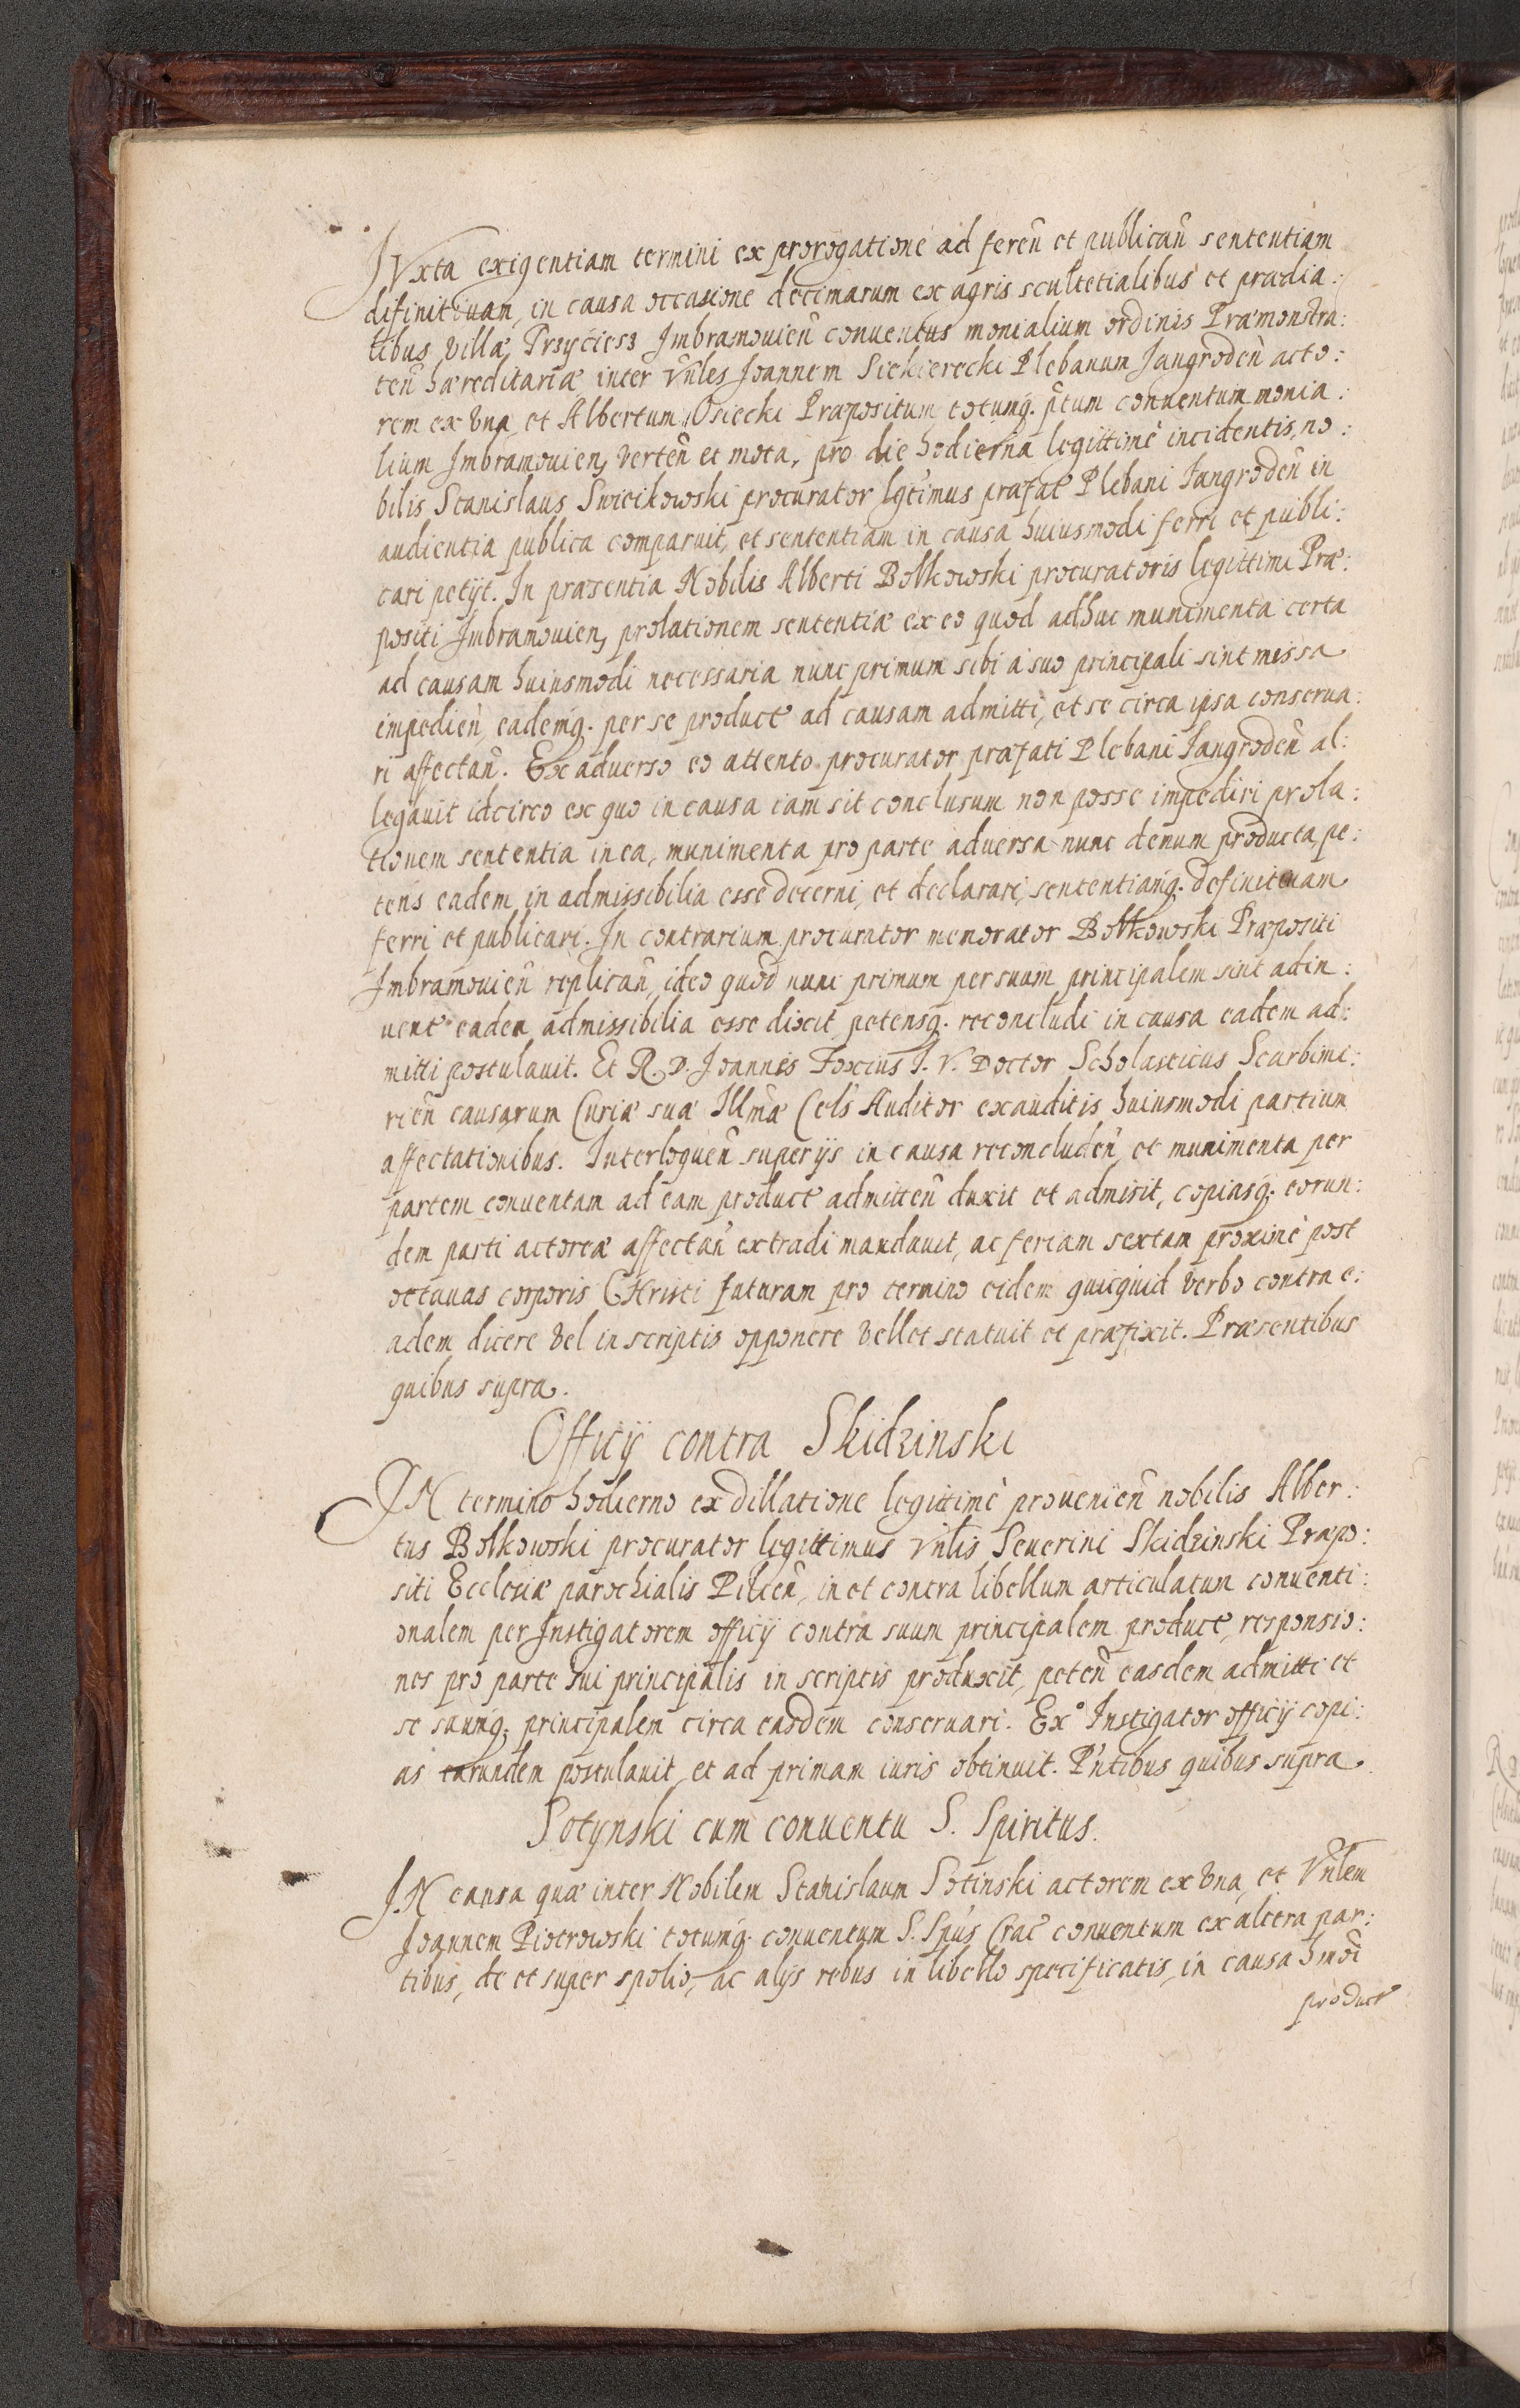 IVxta exigentiam termini ex prorogatione ad feren̄ et publican̄ sententiam
difinitiuam, in causa occasione decimarum ex agris scultetialibus et prædia:
libus villæ Trzyciesz Imbramouien̄ conuentus monialium ordinis Præmonstra:
ten̄ hæreditariæ inter Vn̄les Joannem Siekierecki Plebanum Jangroden̄ acto:
rem ex vna, et Albertum Osiecki Præpositum totumq. p̄tum conuentum monia:
lium Imbramouien, verten̄ et mota, pro die hodierna legittimè incidentis, no:
bilis Stanislaus Swiecikowski procurator lgtimus præfat Plebani Jangroden̄ in
audientia publica comparuit, et sententiam in causa huiusmodi ferri et publi:
cari petijt. In præsentia Nobilis Alberti Bolkowski procuratoris legittimi Præ:
positi Imbramouien, prolationem sententiæ ex eo quod adhuc munimenta certa
ad causam huiusmodi necessaria nunc primum sibi a suo principali sint missa
impedien̄, eademq. per se product ad causam admitti, et se circa ipsa conserua:
ri affectan̄. Ex aduerso eo attento procurator præfati Plebani Jangroden̄ al:
legauit idcirco ex quo in causa iam sit conclusum non posse impediri prola:
tionem sententia in ea, munimenta pro parte aduersa nunc demum producta, pe:
tens eadem in admissibilia esse decerni, et declarari, sententiamq. definitiuam
ferri et publicari. In contrarium procurator memorator Bolkowski Præpositi
Imbramouien̄ replican̄, ideo quod nunc primum per suum principalem sint adin:
uent eadem admissibilia esse dixit petensq. reconcludi in causa eadem ad:
mitti postulauit. Et R. D. Joannes Foxius I. V. Doctor Scholasticus Scarbimi:
rien̄ causarum Curiæ suæ Illmæ Cels Auditor exauditis huiusmodi partium
affectationibus. Interloquen̄ super ijs in causa reconcluden̄, et munimenta per
partem conuentam ad eam product admitten̄ duxit et admisit, copiasq. eorun:
dem parti actoreæ affectan̄ extradi mandauit, ac feriam sextam proximè post
octauas corporis CHristi futuram pro termino eidem quicquid verbo contra e:
adem dicere vel in scriptis opponere vellet statuit et præfixit. Præsentibus
quibus supra.
Officij contra Skidzinski
IN termino hodierno ex dillatione legittimè prouenien̄ nobilis Alber:
tus Bolkowski procurator legittimus Vn̄lis Seuerini Skidzinski Præpo:
siti Ecclesiæ parochialis Pilcen̄, in et contra libellum articulatum conuenti:
onalem per Instigatorem officij contra suum principalem product, responsio:
nes pro parte sui principalis in scriptis produxit, peten̄ easdem admitti et
se suumq. principalem circa easdem conseruari. Ex° Instigator officij copi:
as earundem postulauit, et ad primam iuris obtinuit. P̄ntibus quibus supra.
Sotynski cum conuentu S. Spiritus.
IN causa quæ inter Nobilem Stanislaum Sotinski actorem ex vna, et Vn̄lem
Joannem Piotrowski totumq. conuentum S. Sp̄us Crac conuentum ex altera par:
tibus, de et super spolio, ac alijs rebus in libello specificatis, in causa hmōi
product